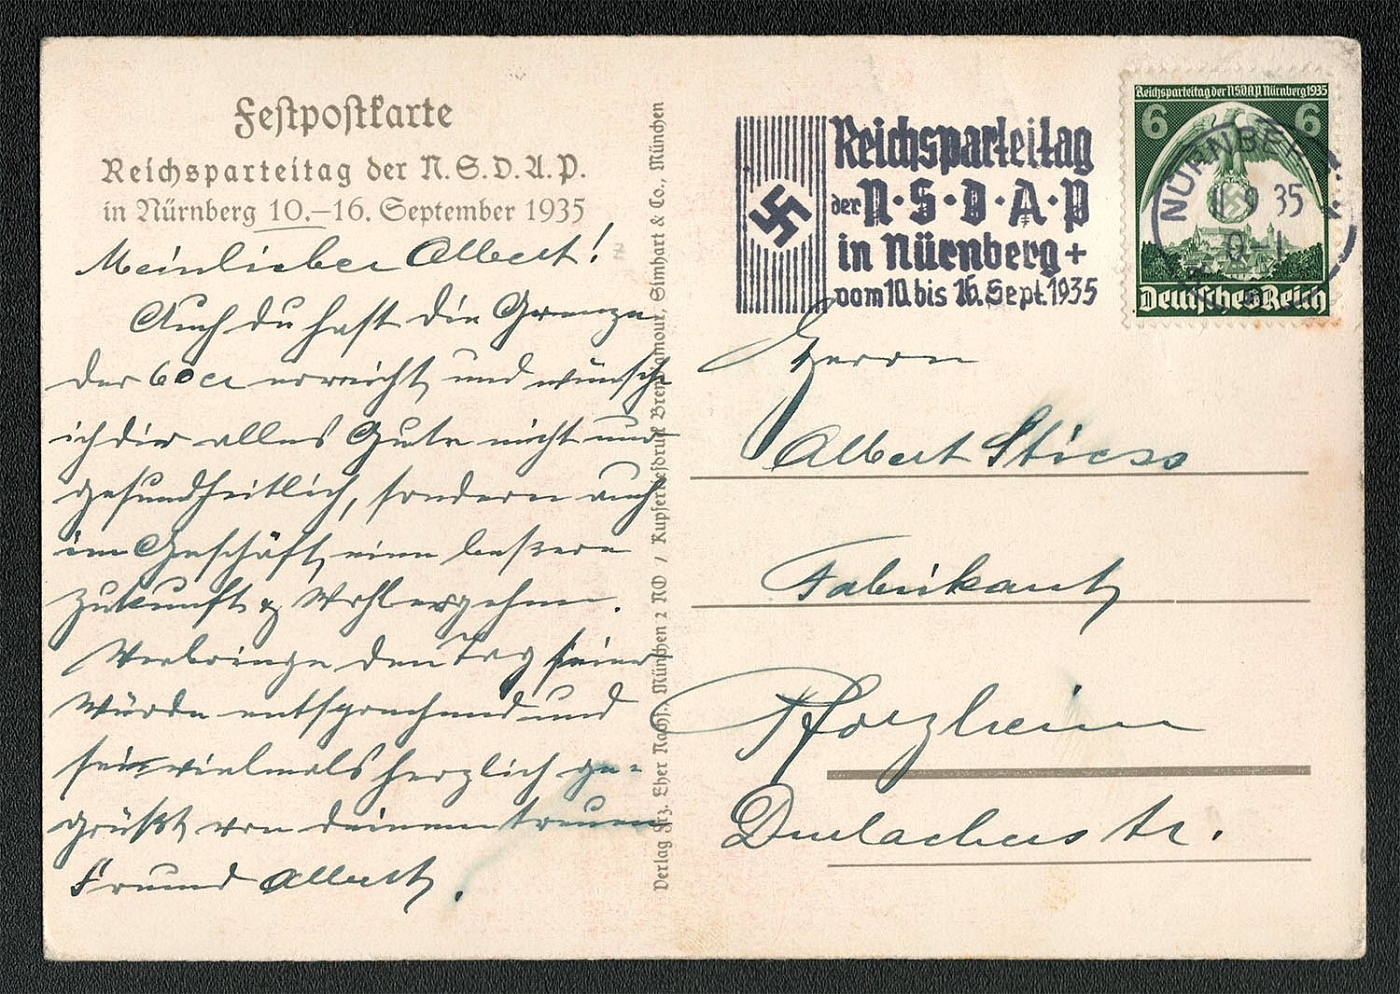 Festpostkarte
Reichsparteitag der N.S.D.A.P.
in Nürnberg 10.–16. September 1935
Mein lieber Albert!
Auch du hast die Grenze
der 60er erreicht, und wünsche
ich dir alles Gute nicht nur
gesundheitlich, sondern auch
im Geschäft, eine bessere
Zukunft & Wohlergehen.
Verbringe den Tag seiner
Würde entsprechend und
sei vielmals herzlich ge-
grüßt von deinem treuen
Freund Albert.
Verlag Frz. Eher Nachf., München 2 NO / Kupfertiefdruck Brend'amour, Simhart & Co., München
Reichsparteitag
der N·S·D·A·P
in Nürnberg +
vom 10. bis 16. Sept. 1935
Reichsparteitag der NSDAP Nürnberg 1935
6 6
Deutsches Reich
NÜRNBERG
9 35
Herrn
Albert Stiess
Fabrikant
Pforzheim
Durlacherstr.